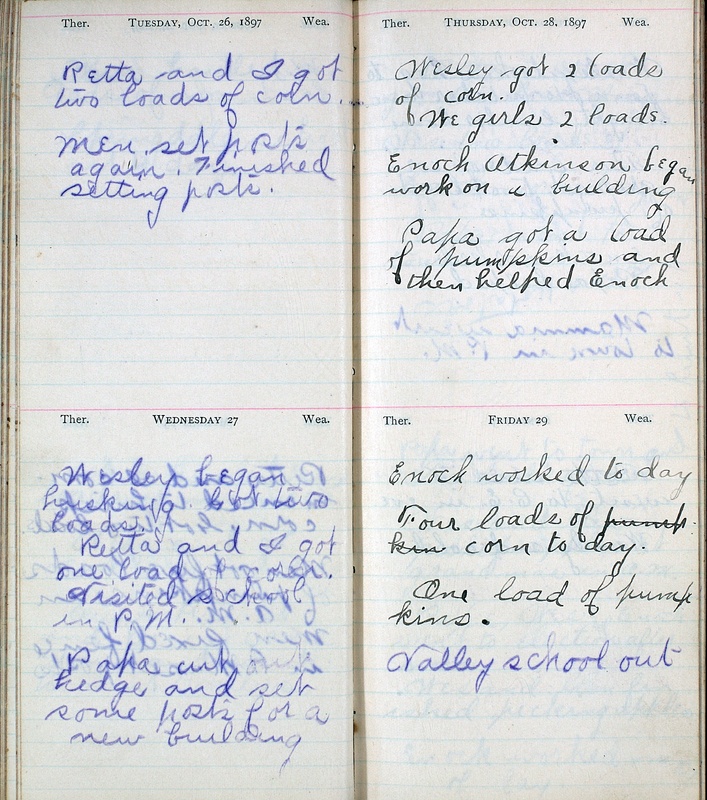 Ther. TUESDAY, OCT. 26, 1897 Wea.
Retta and I got
two loads of corn.
Men set posts
again. Finished
setting posts.
Ther. WEDNESDAY 27 Wea.
Wesley began
husking. Got two
loads.
Retta and I got
one load of corn.
Visited school
in P.M.
Papa cut
hedge and set
some posts for a
new building
Ther. THURSDAY, OCT. 28, 1897 Wea.
Wesley got 2 loads
of corn.
We girls 2 loads.
Enoch Atkinson began
work on a building
Papa got a load
of pumpkins and
then helped Enoch
Ther. FRIDAY 29 Wea.
Enoch worked to day
Four loads of pump
kin corn to day.
One load of pump
kins.
Valley school out